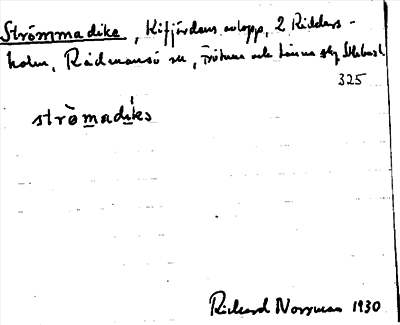 Strömmadike, Kifjärdens avlopp, 2 Ridders-
holm, Rådmansö sn, Frötuna och Länna skg Sthlms l
325
strömadiks
Richard Norrman 1930